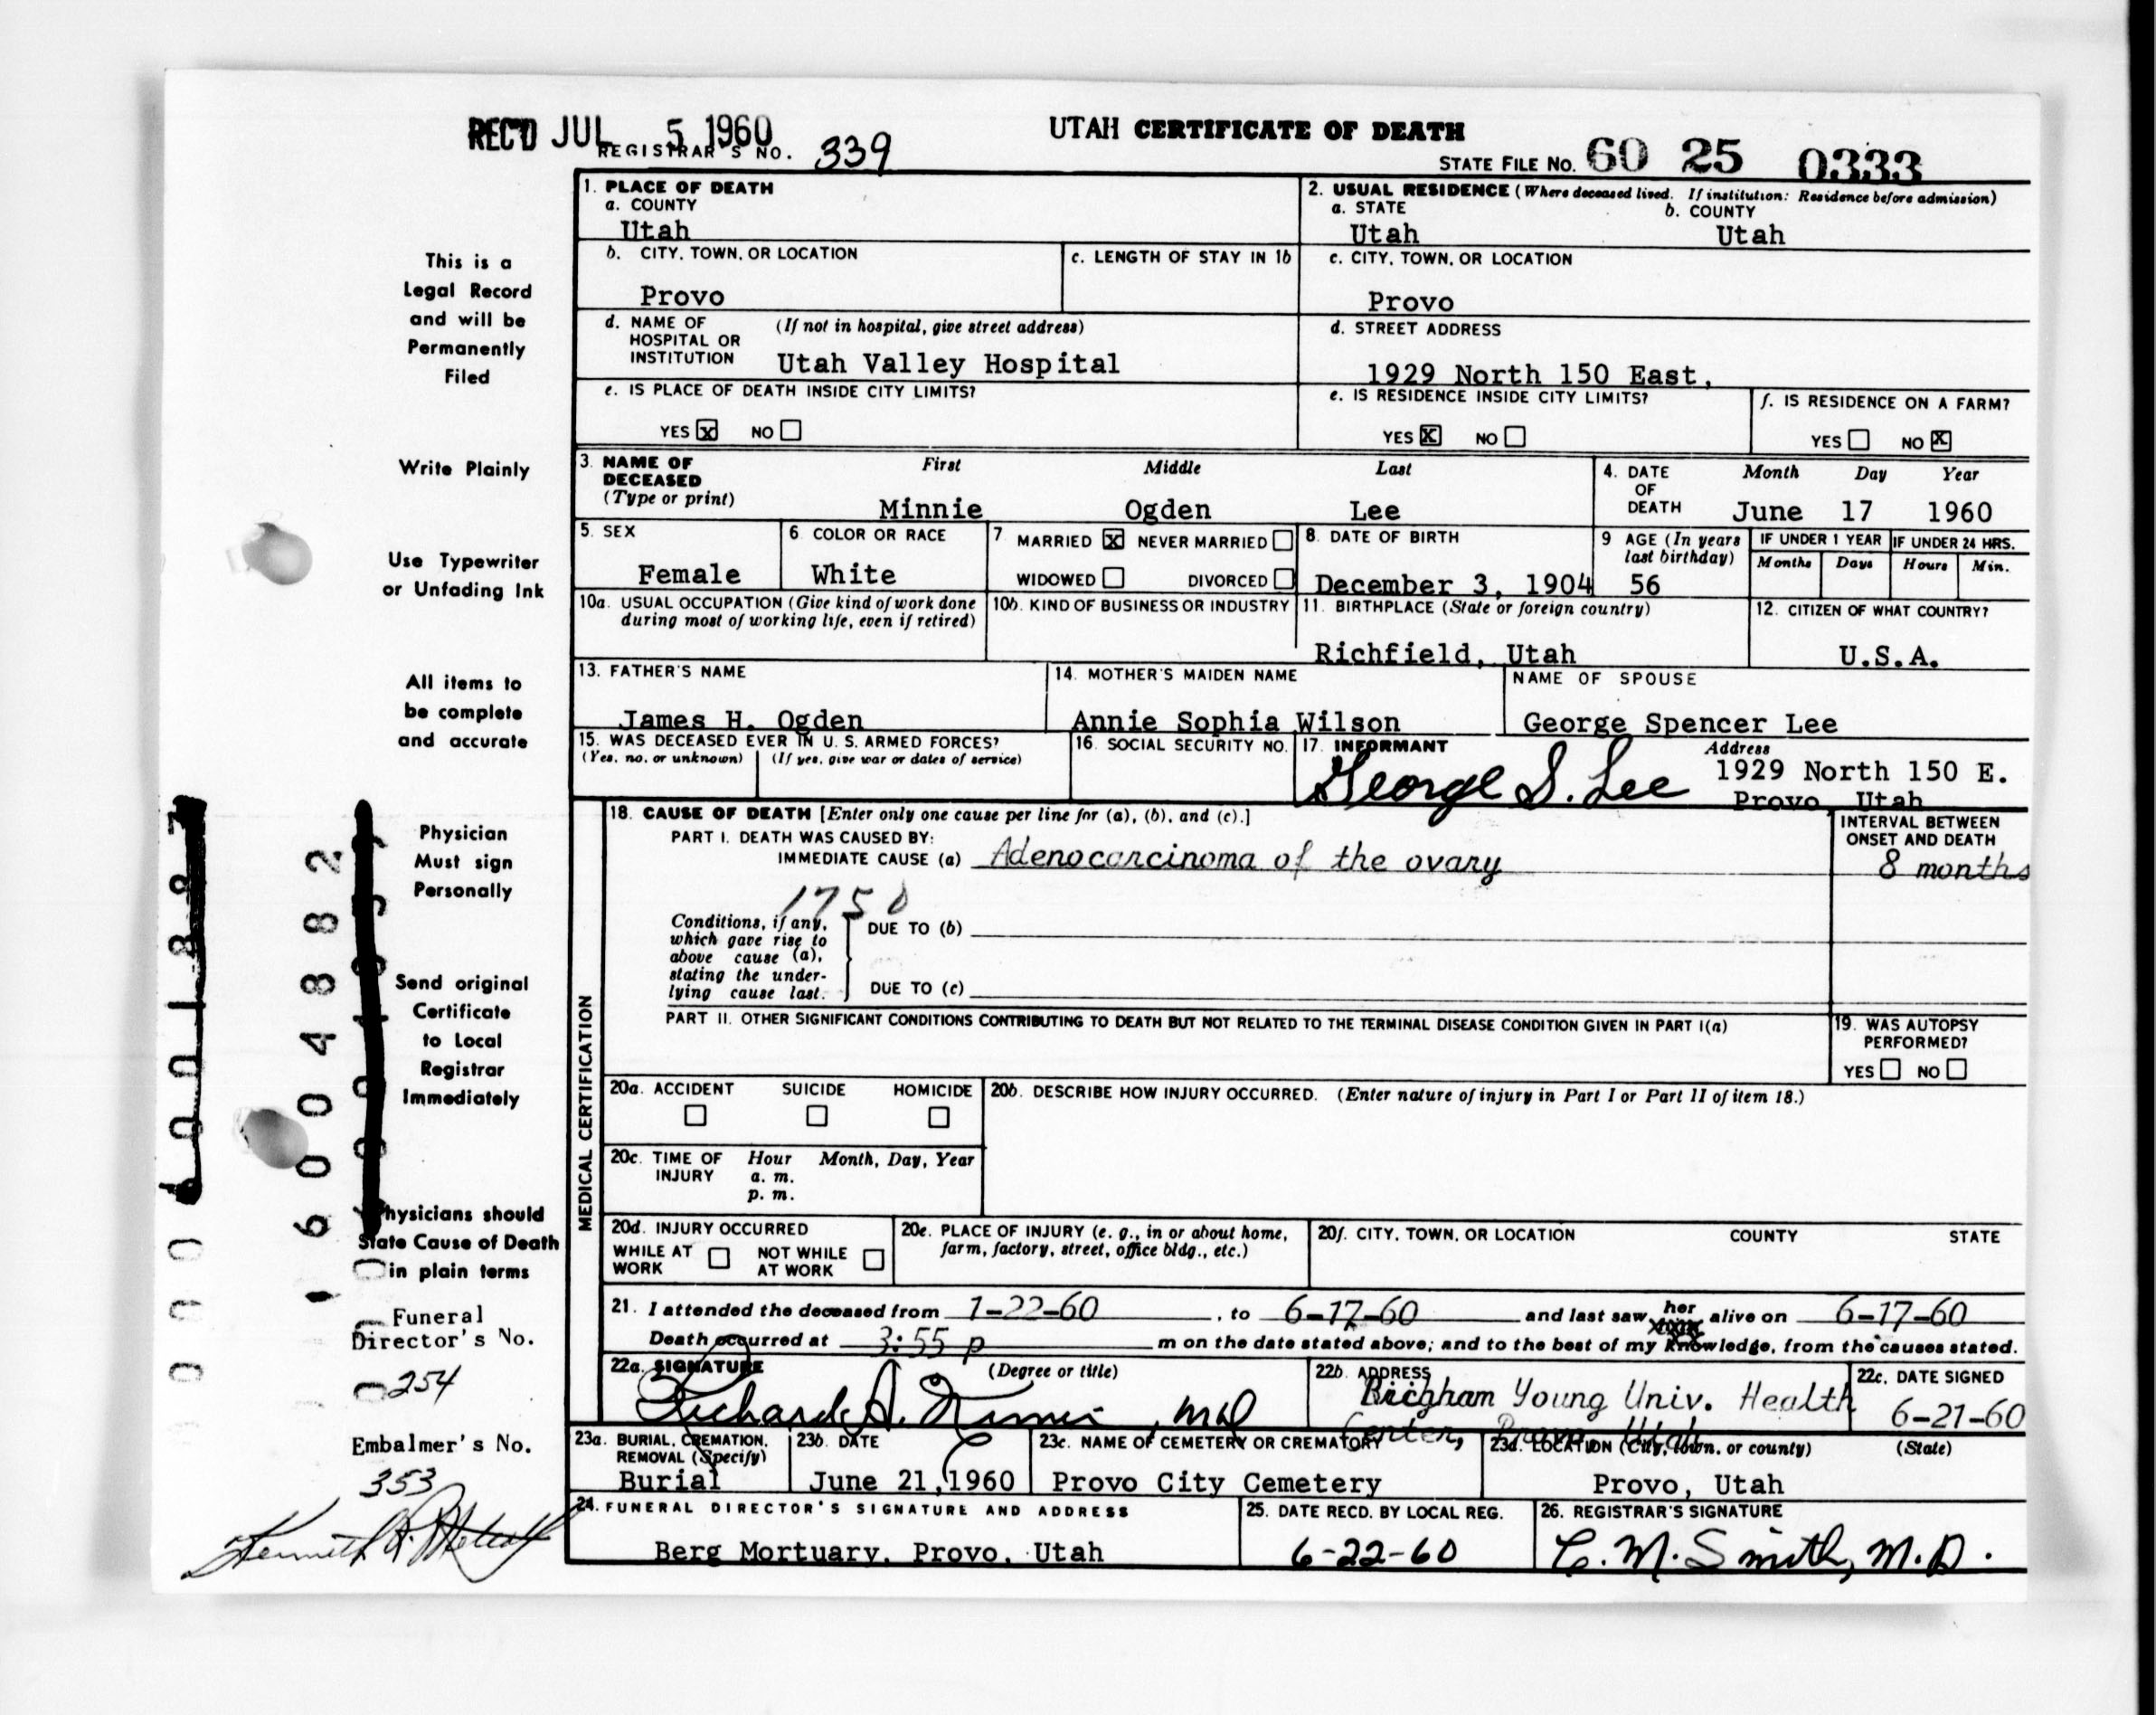 REC'D JUL 5 1960
REGISTRAR'S NO. 339
UTAH CERTIFICATE OF DEATH
STATE FILE NO. 60 25 0333
This is a
Legal Record
and will be
Permanently
Filed
Write Plainly
Use Typewriter
or Unfading Ink
All items to
be complete
and accurate
Physician
Must sign
Personally
Send original
Certificate
to Local
Registrar
Immediately
hysicians should
State Cause of Death
in plain terms
Funeral
Director's No.
254
Embalmer's No.
353
1. PLACE OF DEATH
a. COUNTY
Utah
b. CITY, TOWN, OR LOCATION
Provo
c. LENGTH OF STAY IN 1b
d. NAME OF HOSPITAL OR INSTITUTION (If not in hospital, give street address)
Utah Valley Hospital
e. IS PLACE OF DEATH INSIDE CITY LIMITS?
YES X NO
2. USUAL RESIDENCE (Where deceased lived. If institution: Residence before admission)
a. STATE b. COUNTY
Utah Utah
c. CITY, TOWN, OR LOCATION
Provo
d. STREET ADDRESS
1929 North 150 East,
e. IS RESIDENCE INSIDE CITY LIMITS?
YES X NO
f. IS RESIDENCE ON A FARM?
YES NO X
3. NAME OF DECEASED (Type or print) First Middle Last
Minnie Ogden Lee
4. DATE OF DEATH Month Day Year
June 17 1960
5. SEX
Female
6. COLOR OR RACE
White
7. MARRIED X NEVER MARRIED
WIDOWED DIVORCED
8. DATE OF BIRTH
December 3, 1904
9 AGE (In years last birthday)
56
IF UNDER 1 YEAR IF UNDER 24 HRS.
Months Days Hours Min.
10a. USUAL OCCUPATION (Give kind of work done
during most of working life, even if retired)
10b. KIND OF BUSINESS OR INDUSTRY
11. BIRTHPLACE (State or foreign country)
Richfield, Utah
12. CITIZEN OF WHAT COUNTRY?
U.S.A.
13. FATHER'S NAME
James H. Ogden
14. MOTHER'S MAIDEN NAME
Annie Sophia Wilson
NAME OF SPOUSE
George Spencer Lee
15. WAS DECEASED EVER IN U. S. ARMED FORCES?
(Yes, no, or unknown) (If yes, give war or dates of service)
16. SOCIAL SECURITY NO.
17. INFORMANT Address
George S. Lee 1929 North 150 E.
Provo, Utah
MEDICAL CERTIFICATION
18. CAUSE OF DEATH [Enter only one cause per line for (a), (b), and (c).]
PART I. DEATH WAS CAUSED BY:
IMMEDIATE CAUSE (a) Adenocarcinoma of the ovary
INTERVAL BETWEEN
ONSET AND DEATH
8 months
1750
Conditions, if any,
which gave rise to
above cause (a),
stating the under-
lying cause last.
DUE TO (b)
DUE TO (c)
PART II. OTHER SIGNIFICANT CONDITIONS CONTRIBUTING TO DEATH BUT NOT RELATED TO THE TERMINAL DISEASE CONDITION GIVEN IN PART I(a)
19. WAS AUTOPSY
PERFORMED?
YES NO
20a. ACCIDENT SUICIDE HOMICIDE
20b. DESCRIBE HOW INJURY OCCURRED. (Enter nature of injury in Part I or Part II of item 18.)
20c. TIME OF INJURY Hour Month, Day, Year
a. m.
p. m.
20d. INJURY OCCURRED
WHILE AT WORK NOT WHILE AT WORK
20e. PLACE OF INJURY (e. g., in or about home,
farm, factory, street, office bldg., etc.)
20f. CITY, TOWN, OR LOCATION COUNTY STATE
21. I attended the deceased from 1-22-60, to 6-17-60 and last saw her alive on 6-17-60
Death occurred at 3:55 p m on the date stated above; and to the best of my knowledge, from the causes stated.
22a. SIGNATURE (Degree or title)
Richard A. , MD
22b. ADDRESS
Brigham Young Univ. Health
Center, Provo, Utah
22c. DATE SIGNED
6-21-60
23a. BURIAL, CREMATION,
REMOVAL (Specify)
Burial
23b. DATE
June 21, 1960
23c. NAME OF CEMETERY OR CREMATORY
Provo City Cemetery
23d. LOCATION (City, town, or county) (State)
Provo, Utah
24. FUNERAL DIRECTOR'S SIGNATURE AND ADDRESS
Berg Mortuary, Provo, Utah
25. DATE RECD. BY LOCAL REG.
6-22-60
26. REGISTRAR'S SIGNATURE
C. M. Smith, M.D.